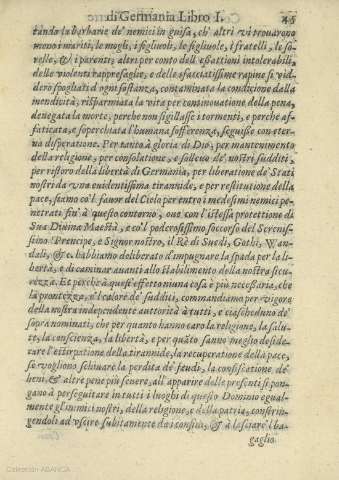 di Germania Libro I. 45
tando la barbarie de' nemici in guisa, ch' altri vi trouarono
meno i mariti, le mogli, i figliuoli, le figliuole, i fratelli, le so-
relle, & i parenti; altri per conto dell'essattioni intolerabili,
delle violenti rappresaglie, e delle sfacciatissime rapine si vid-
dero spogliati d'ogni sostanza, contaminata la conditione dalla
mendicità, risparmiata la vita per continouatione della pena,
denegata la morte, perche non sigillasse i tormenti, e perche af-
faticata, e soperchiata l'humana sofferenza, seguisse con eter-
na disperatione. Per tanto à gloria di Dio, per mantenimento
della religione, per consolatione, e solleuo de' nostri sudditi,
per ristoro della libertà di Germania, per liberatione de' Stati
nostri da vna euidentissima tirannide, e per restitutione della
pace, siamo co'l fauor del Cielo per entro i medesimi nemici pe-
netrati fin' à questo contorno, oue con l'istessa protettione di
Sua Diuina Maestà, e co'l poderosissimo soccorso del Serenis-
simo Prencipe, e Signor nostro, il Rè di Suedi, Gothi, Wan-
dali, &c. habbiamo deliberato d'impugnare la spada per la li-
bertà, e di caminar auanti allo stabilimento della nostra sicu-
rezza. Et perche à quest' effetto niuna cosa è più necessaria, che
la prontezza, e'l calore de' sudditi, commandiamo per vigore
della nostra independente autorità à tutti, e ciascheduno de'
sopra nominati, che per quanto hanno caro la religione, la salu-
te, la conscienza, la libertà, e per quãto sanno meglio deside-
rare l'estirpatione della tirannide, la recuperatione della pace,
se vogliono schiuare la perdita de' feudi, la confiscatione de'
beni, & altre pene più seuere, all' apparire delle presenti si pon-
gano à perseguitare in tutti i luoghi di questo Dominio egual-
mente gl'inimici nostri, della religione, e della patria, costrin-
gendoli ad vscire subitamente da i confini, & à lasciare il ba-
gaglio
Colección ABANCA